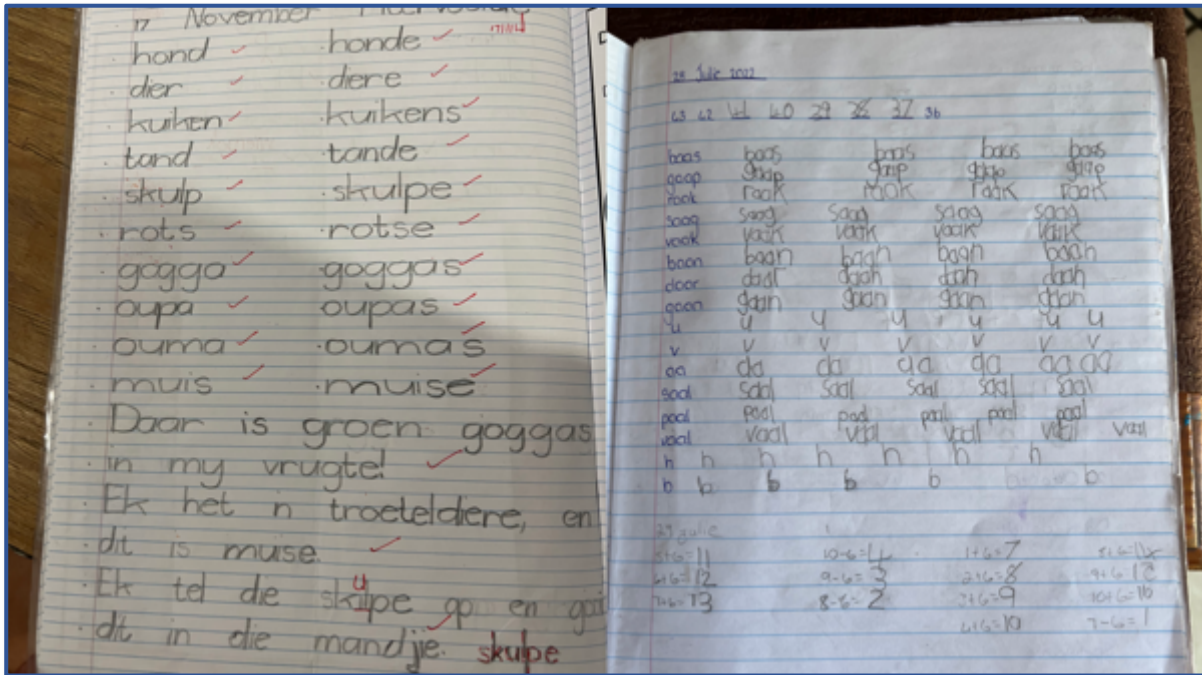 17 November Meervoude
hond honde
dier diere
kuiken kuikens
tand tande
skulp skulpe
rots rotse
gogga goggas
oupa oupas
ouma oumas
muis muise
Daar is groen goggas
in my vrugte!
Ek het n troeteldiere, en
dit is muse.
u
Ek tel die skilpe op en gooi
dit in die mandjie. skulpe
28 Julie 2022
43 42 41 40 39 38 37 36
baas baas baas baas baas
gaap gaap gaap gaap gaap
raak raak raak raak raak
saag saag saag saag saag
vaak vaak vaak vaak vaak
baan baan baan baan baan
daar daar daar daar daar
gaan gaan gaan gaan gaan
u u u u u u u
v v v v v v v
aa aa aa aa aa aa aa
saal saal saal saal saal saal
paal paal paal paal paal paal
vaal vaal vaal vaal vaal vaal
h h h h h h h
b b b b b b
29 Julie
5+6=11 10-6=4 1+6=7
6+6=12 9-6=3 2+6=8
7+6=13 8-6=2 3+6=9 10+6=16
4+6=10 7-6=1